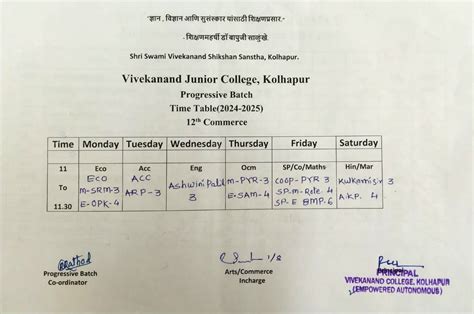 "ज्ञान, विज्ञान आणि सुसंस्कार यांसाठी शिक्षणप्रसार."
- शिक्षणमहर्षी डॉ बापुजी साळुंखे.
Shri Swami Vivekanand Shikshan Sanstha, Kolhapur.
Vivekanand Junior College, Kolhapur
Progressive Batch
Time Table(2024-2025)
12th Commerce
Time Monday Tuesday Wednesday Thursday Friday Saturday
11 Eco Acc Eng Ocm SP/Co/Maths Hin/Mar
To ECO ACC Ashwini Patil M-PYR-3 COOP-PYR 3 3
11.30 M-SRM-3 ARP-3 3 E-SAM-4 SP-M- 4 A.K.P. 4
E-OPK-4 SP-E BMP-6
Progressive Batch
Co-ordinator
Arts/Commerce
Incharge
PRINCIPAL
VIVEKANAND COLLEGE, KOLHAPUR
(EMPOWERED AUTONOMOUS)